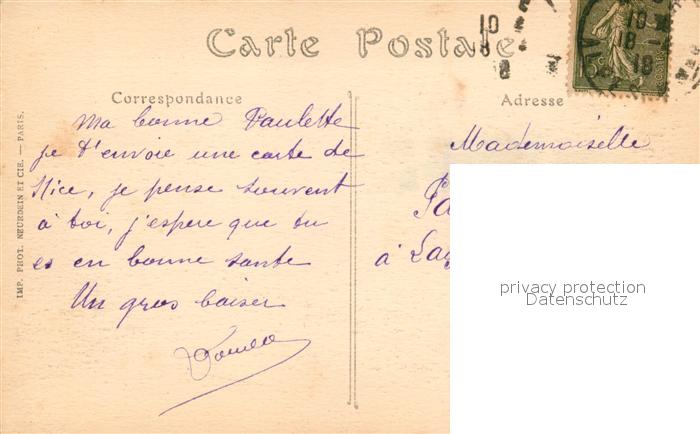 Carte Postale
Correspondance
Ma bonne Paulette
je t'envoie une carte de
Nice, je pense souvent
à toi, j'espere que tu
es en bonne sante
Un gros baiser
Adresse
Mademoiselle
à
IMP. PHOT. NEURDEIN ET CIE. — PARIS.
10
18
privacy protection
Datenschutz